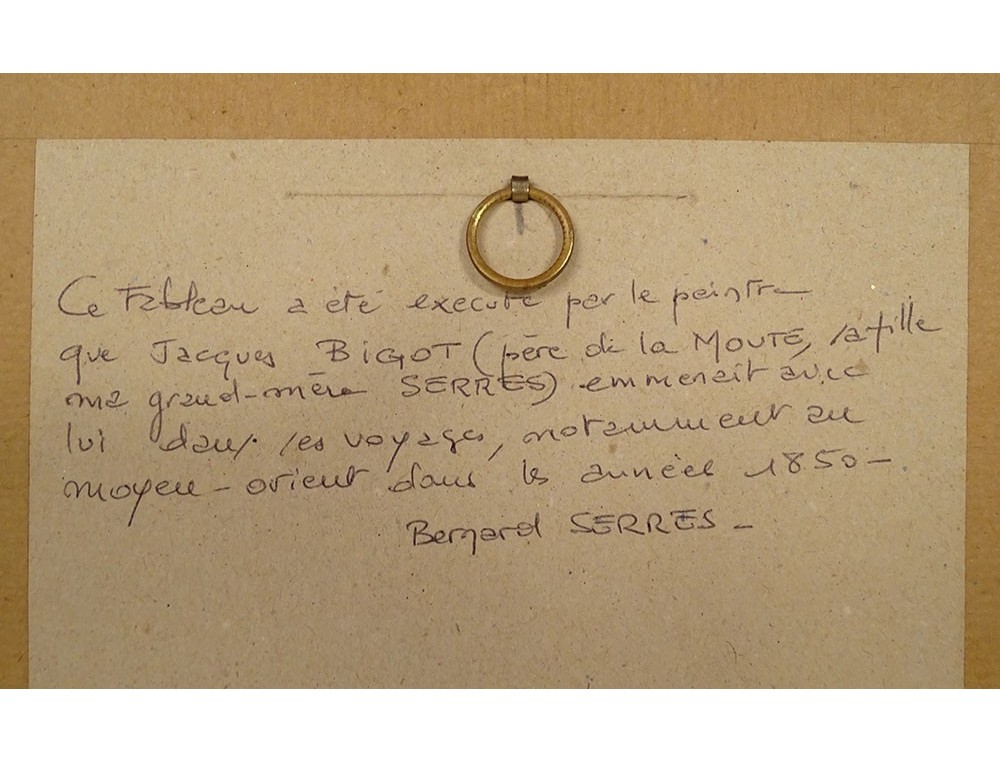 Ce Tableau a été executé par le peintre
que Jacques BIGOT (père de la MOUTE, sa fille
ma grand-mère SERRES) emmenait avec
lui dans ses voyages, notamment au
moyen-orient dans les années 1850-
Bernard SERRES -